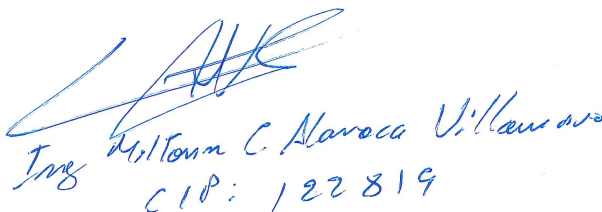 Ing Miltonn C. Alanoca Villanueva
CIP: 122819